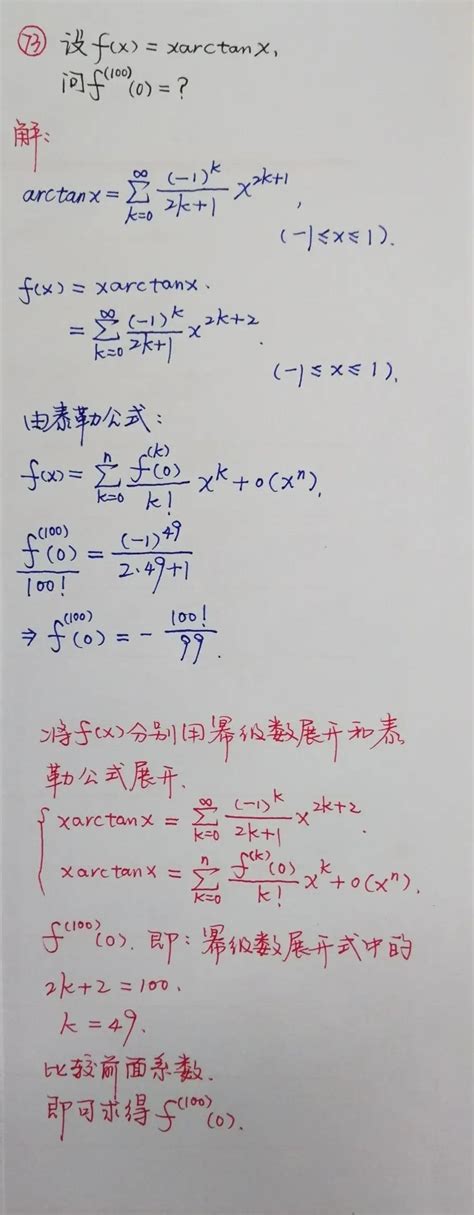 73 设 f(x) = xarctanx,
问 f^{(100)}(0) = ?
解:
arctanx = \sum_{k=0}^{∞} \frac{(-1)^k}{2k+1} x^{2k+1},
(-1≤x≤1).
f(x) = xarctanx.
= \sum_{k=0}^{∞} \frac{(-1)^k}{2k+1} x^{2k+2}.
(-1≤x≤1).
由泰勒公式:
f(x) = \sum_{k=0}^{n} \frac{f^{(k)}(0)}{k!} x^k + o(x^n).
\frac{f^{(100)}(0)}{100!} = \frac{(-1)^{49}}{2·49+1}
⇒ f^{(100)}(0) = - \frac{100!}{99}.
将f(x)分别用幂级数展开和泰
勒公式展开.
{ xarctanx = \sum_{k=0}^{∞} \frac{(-1)^k}{2k+1} x^{2k+2}.
xarctanx = \sum_{k=0}^{n} \frac{f^{(k)}(0)}{k!} x^k + o(x^n).
f^{(100)}(0). 即: 幂级数展开式中的
2k+2 = 100.
k = 49.
比较前面系数.
即可求得 f^{(100)}(0).